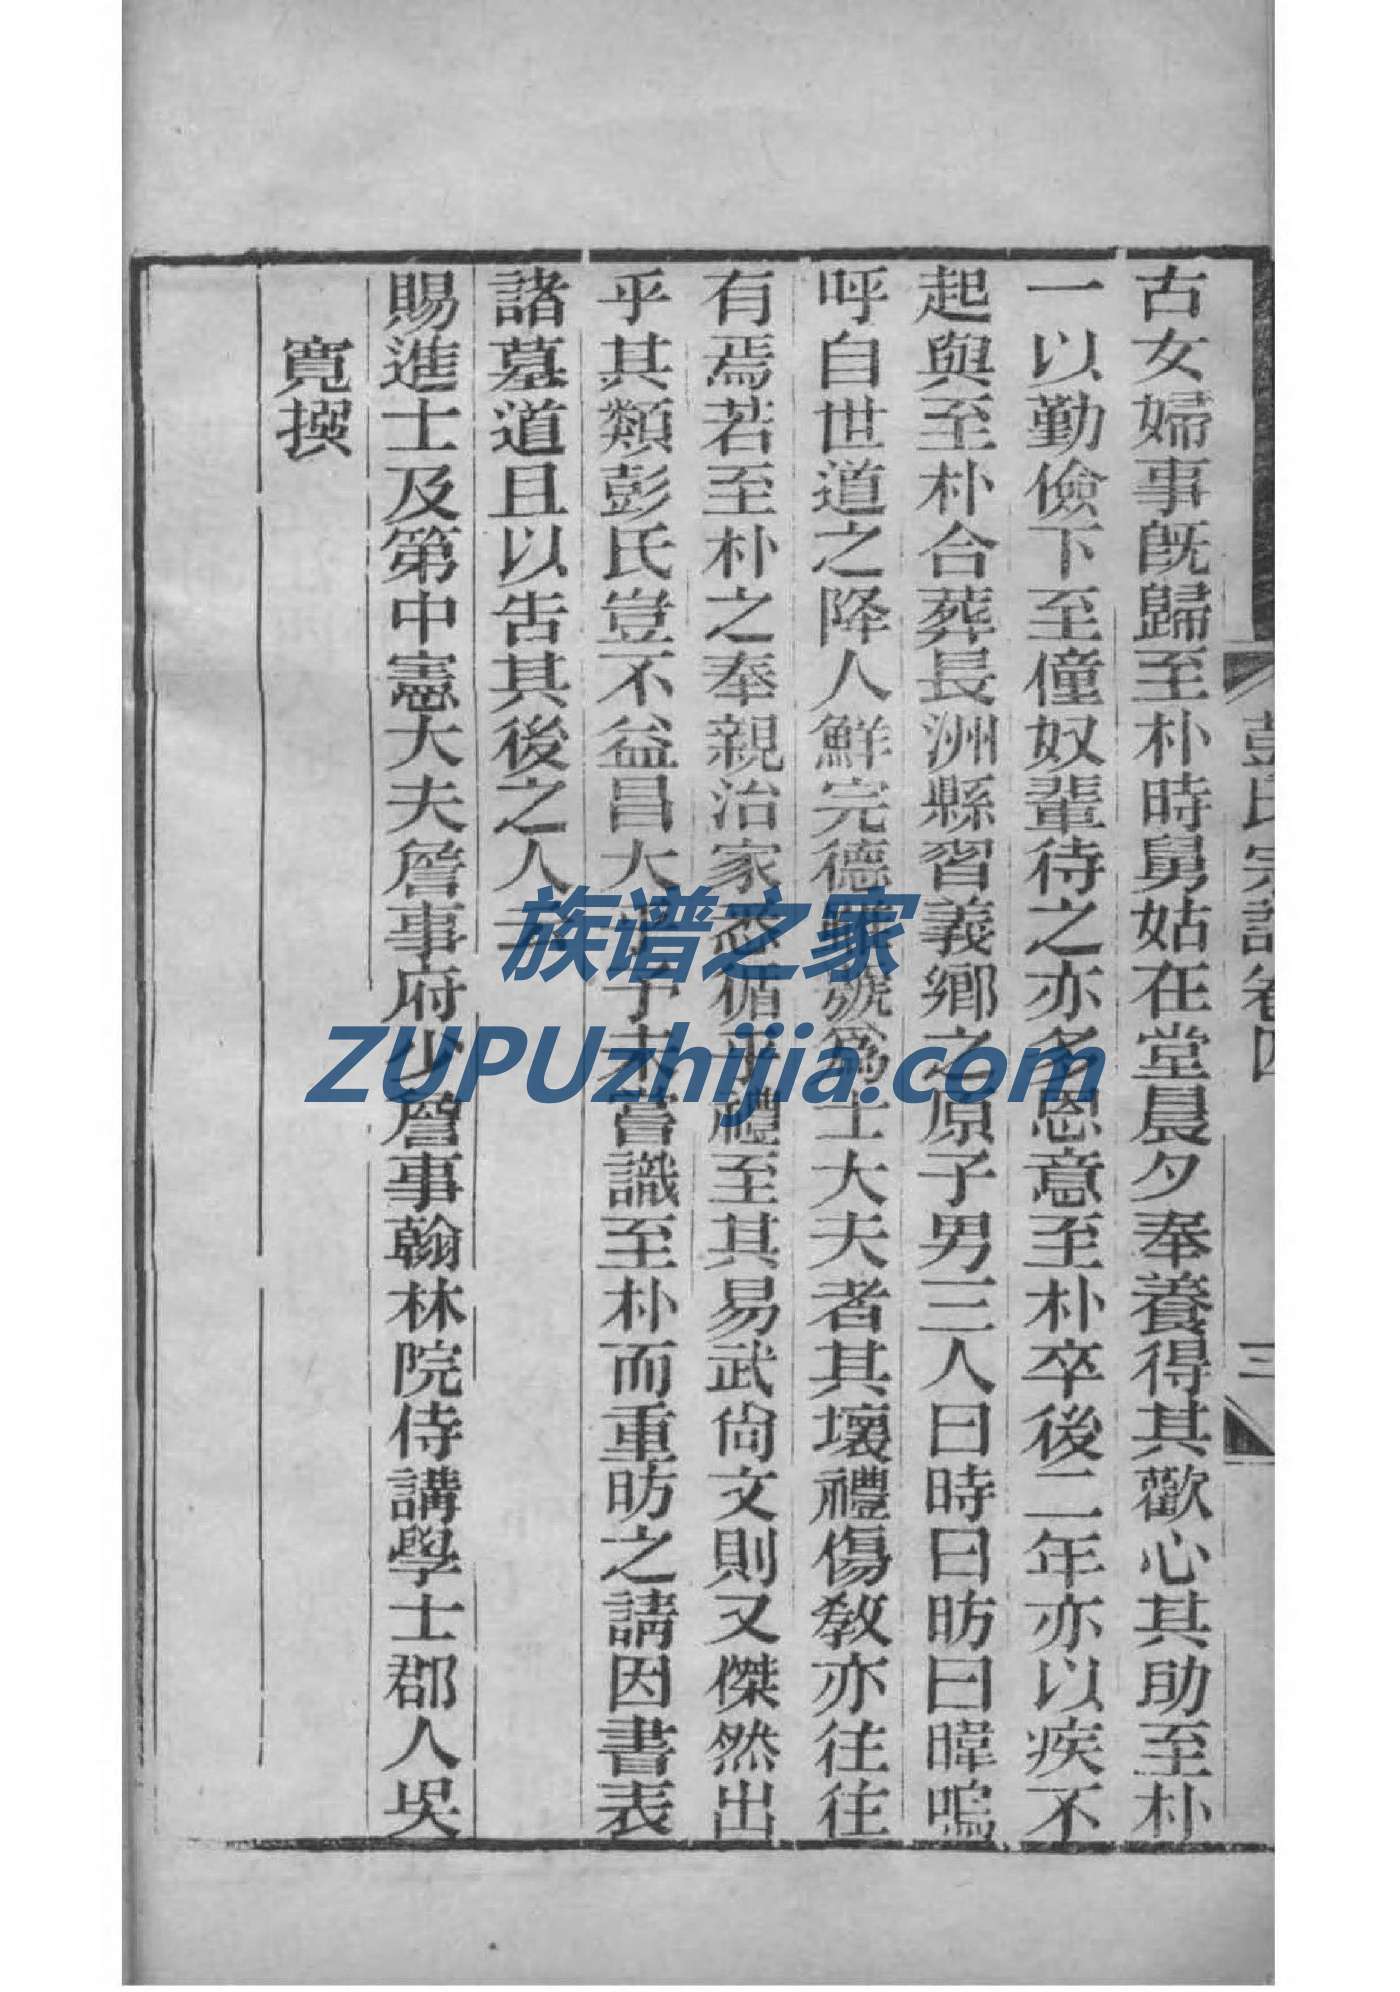 彭氏宗譜卷四
三
古女婦事旣歸至朴時舅姑在堂晨夕奉養得其歡心其助至朴
一以勤儉下至僮奴輩待之亦多恩意至朴卒後二年亦以疾不
起與至朴合葬長洲縣習義鄉之原子男三人曰時曰昉曰暐嗚
呼自世道之降人鮮完德雖號爲士大夫者其壞禮傷敎亦往往
有焉若至朴之奉親治家悉循乎禮至其易武尙文則又傑然出
乎其類彭氏豈不益昌大乎予未嘗識至朴而重昉之請因書表
諸墓道且以告其後之人
賜進士及第中憲大夫詹事府少詹事翰林院侍講學士郡人吳
寬撰
族谱之家
ZUPUzhijia.com